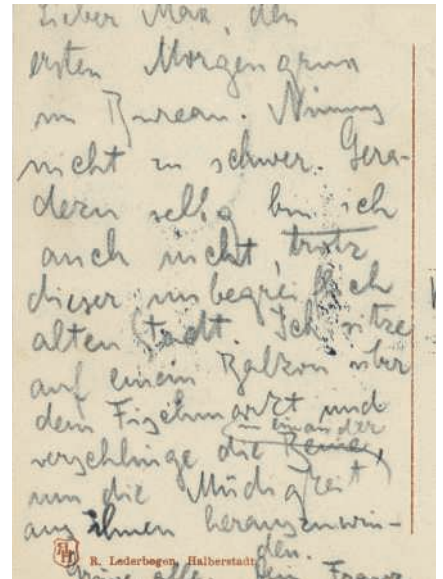 Lieber Max, den
ersten Morgengruss
im Bureau. Nimms
nicht zu schwer. Gera-
dezu selig bin ich
auch nicht, trotz
dieser unbegreiflich
alten Stadt. Ich sitze
auf einem Balkon über
dem Fischmarkt und
in einander
verschlinge die Beine,
um die Müdigkeit
aus ihnen herauszuwin-
den.
R. Lederbogen, Halberstadt.
Grüsse alle. Dein Franz